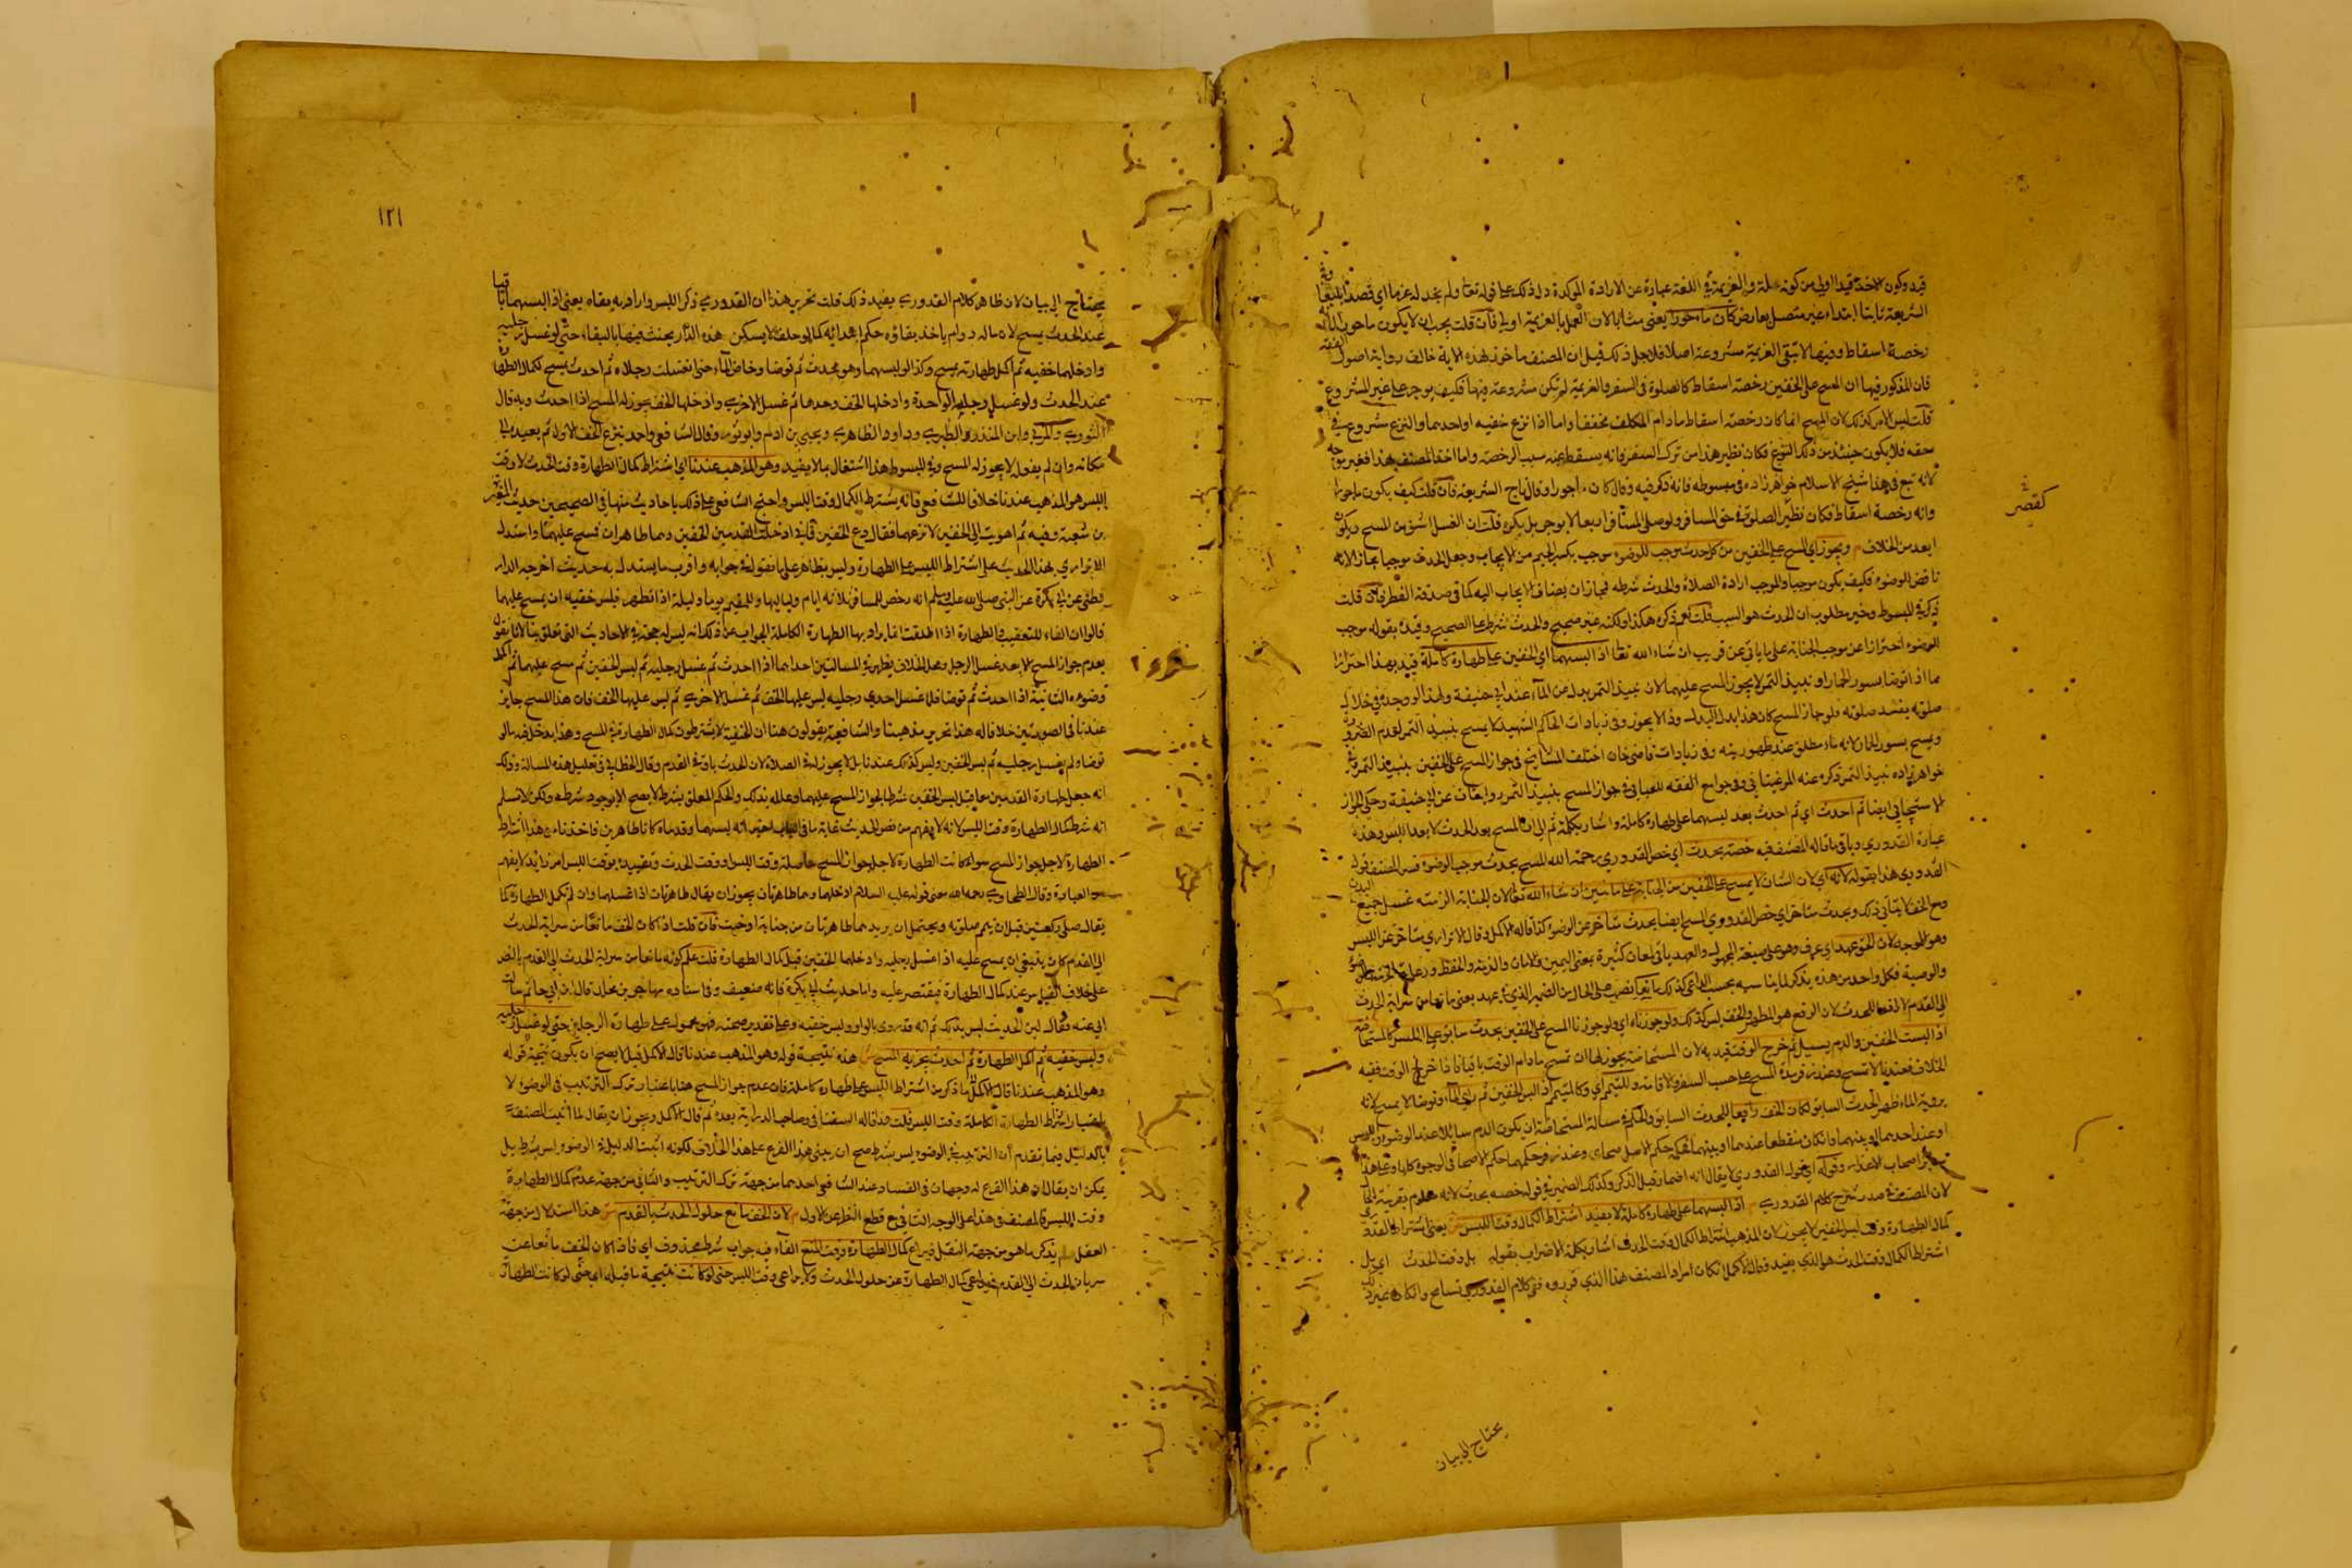 قيد وكون الاخذ قيدا اولى من كونه علة والعزيمة في اللغة عبارة عن الارادة المؤكدة دل ذلك على قوله تعالى ولم نجد له عزما اي قصدا بليغا وفي
الشريعة ثابتا ابتداء غير متصل بعارض كان ماجورا يعني مثابا لان العمل بالعزيمة اولى فان قلت يجب ان لا يكون ماجورا لانه
رخصة اسقاط وفيها لا تبقى العزيمة مشروعة اصلا فلاجل ذلك قيل ان المصنف ماخوذ بهذه لانه خالف رواية اصول الفقه
فان المذكور فيها ان المسح على الخفين رخصة اسقاط كالصلوة في السفر والعزيمة لم تكن مشروعة فيها فكيف يوجر على غير المشروع
قلت ليس الامر كذلك لان المسح انما كان رخصة اسقاط مادام المكلف متخففا واما اذا نزع خفيه او احدهما والنزع مشروع في
حقه فلا يكون حينئذ من ذلك النوع فكان نظير هذا من ترك السفر فانه يسقط عنه سبب الرخصة واما اخذ المصنف بهذا فغير موجه
لانه تبع في هذا شيخ الاسلام خواهرزاده في مبسوطه فانه ذكر فيه وقال كان ماجورا وقال تاج الشريعة فان قلت كيف يكون ماجورا
وانه رخصة اسقاط فكان نظير الصلوة في حق المسافر ولو صلى المسافر اربعا لا يوجر بل يكره قلت ان الغسل اشق من المسح ويكون
كقصر
ابعد من الخلاف م ويجوز اي المسح على الخفين من كل حدث موجب للوضوء موجب بكسر الجيم من الايجاب وجعل الحدث موجبا مجاز لانه
ناقض للوضوء فكيف يكون موجبا والموجب ارادة الصلاة والحدث شرطه فجاز ان يضاف الايجاب اليه كما في صدقة الفطر فان قلت
ذكر في المبسوط وخير مطلوب ان الحدث هو السبب قلت نعم ذكره هكذا ولكنه غير صحيح والحدث شرط على الصحيح وقيده بقوله موجب
للوضوء احترازا عن موجب الجنابة على ما ياتي عن قريب ان شاء الله تعالى اذا لبسهما اي الخفين على طهارة كاملة قيد بهذا احترازا
عما اذا توضا بسور الحمار او نبيذ التمر لا يجوز المسح عليهما لان نبيذ التمر بدل عن الماء عند ابي حنيفة ولهذا لو وجده في خلال
صلوته يفسد صلوته فلو جاز المسح كان هذا بدل البدل وذا لا يجوز وفي زيادات الحاكم الشهيد لا يمسح بنبيذ التمر لعدم الضرورة
ويمسح بسور الحمار لانه ماء مطلق عند ظهوريته وفي زيادات قاضي خان اختلف المشايخ في جواز المسح على الخفين بنبيذ التمر في
خواهرزاده نبيذ التمر ذكره عنه المرغيناني وفي جوامع الفقه للعتابي في جواز المسح بنبيذ التمر روايتان عن ابي حنيفة وحكى الجواز
الاسبيجابي ايضا ثم احدث اي ثم احدث بعد لبسهما على طهارة كاملة واشار بكلمة ثم الى ان المسح بعد الحدث لا بعد اللبس وهذه
عبارة القدوري وباقي ما قاله المصنف فيه خصه بحدث اي خص القدوري رحمه الله المسح بحدث موجب للوضوء فسر المصنف قول
القدوري هذا بقوله لانه اي لان الشان لا يمسح على الخفين من الجنابة على ما نبين ان شاء الله تعالى لان الجنابة الزمته غسل جميع البدن
ومع الخف لا يتاتى ذلك وبحدث متاخر اي خص القدوري المسح ايضا بحدث متاخر عن الوضوء كذا قاله الاكمل وقال الاترازي متاخر عن اللبس
وهو الاوجه لان الخف عهد اي عرف وهو على صيغة المجهول والعهد ياتي لمعان كثيرة بمعنى اليمين والامان والذمة والحفظ ورعاية الحرمة
والوصية فكل واحد من هذه يذكر لما يناسبه بحسب الداعي كذلك مانعا نصب على الحال من الضمير الذي في عهد يعني مانعا من سراية الحدث
الى القدم لا رافعا للحدث لان الرفع هو المطهر والخف ليس كذلك ولو جوزناه اي ولو جوزنا المسح على الخفين بحدث سابق على اللبس كالمستحاضة
اذا لبست الخفين والدم يسيل ثم خرج الوقت قيد به لان المستحاضة يجوز لها ان تمسح مادام الوقت باقيا فاذا خرج الوقت ففيه
الخلاف فعندنا لا تمسح وعند زفر مدة المسح على حسب السفر والاقامة وللتيمم اي وكالمتيمم اذا لبس الخفين ثم راى الماء وتوضا لا يمسح لانه
بروية الماء ظهر الحدث السابق لكان الخف رافعا للحدث السابق والكلام في مسالة المستحاضة ان يكون الدم سايلا عند الوضوء واللبس
او عند احدهما او بينهما وان كان منقطعا عندهما وبينهما فحكمه حكم الاصل صحا اي وعند زفر حكمهما حكم الاصحا في الوجوه كلها وعلى هذا
اصحاب الاعذار وقوله اي قول القدوري لا يقال انه اضمار قبل الذكر وكذلك الضمير في قوله خصه بحدث لانه معلوم بقرينة الحال
لان المصنف في صدد شرح كلام القدوري م اذا لبسهما على طهارة كاملة لا يفيد اشتراط الكمال وقت اللبس ش يعني اشتراط القدوري
كمال الطهارة وقت لبس الخفين لا يجوز لان المذهب اشتراط الكمال وقت الحدث اشار بكلمة الاضراب بقوله بل وقت الحدث اي بل
اشتراط الكمال وقت الحدث هو الذي يفيد قال الاكمل فكان مراد المصنف هذا الذي قرروه ففي كلام القدوري تسامح وان كان غير ذلك
يحتاج الى بيان
١٢١
يحتاج الى بيان لان ظاهر كلام القدوري يفيد ذلك قلت تحرير هذا ان القدوري ذكر اللبس واراد به بقاه يعني اذا لبسهما باقيا
عند الحدث يمسح لان ماله دوام ياخذ بقاؤه حكم ابتدائه كما لو حلف لا يسكن هذه الدار يحنث فيها بالبقاء حتى لو غسل رجليه
وادخلهما خفيه ثم اكمل طهارته يمسح وكذا لو لبسهما وهو محدث ثم توضا وخاض الماء حتى انغسلت رجلاه ثم احدث يمسح لكمال الطهارة
عند الحدث ولو غسل رجله الواحدة وادخلها الخف وحدها ثم غسل الاخرى وادخلها الخف يجوز له المسح اذا احدث وبه قال
الثوري والمزني وابن المنذر والطبري وداود الظاهري ويحيى بن ادم وابو ثور وقال الشافعي واحد ينزع الخف الاول ثم يعيده الى
مكانه وان لم يفعل لا يجوز له المسح وفي المبسوط هذا اشتغال بما لا يفيد وهو المذهب عندنا اي اشتراط كمال الطهارة وقت الحدث لا وقت
اللبس هو المذهب عندنا خلافا للشافعي فانه يشترط الكمال وقت اللبس واحتج الشافعي على ذلك باحاديث منها في الصحيحين حديث المغيرة
بن شعبة وفيه ثم اهويت الى الخفين لانزعهما فقال دع الخفين فاني ادخلت القدمين الخفين وهما طاهران فمسح عليهما واستدل
الاترازي بهذا الحديث على اشتراط اللبس على الطهارة وليس بظاهر على ما نقوله في جوابه واقرب ما يستدل به حديث اخرجه الدار
قطني عن ابي بكرة عن النبي صلى الله عليه وسلم انه رخص للمسافر ثلاثة ايام ولياليها وللمقيم يوما وليلة اذا تطهر فلبس خفيه ان يمسح عليهما
قالوا ان الفاء للتعقيب والطهارة اذا اطلقت انما يراد بها الطهارة الكاملة الجواب عن ذلك انه ليس له حجة في الاحاديث التي تعلق بها لانا نقول
بعدم جواز المسح الا بعد غسل الرجل ومحل الخلاف يظهر في المسالتين احداهما اذا احدث ثم غسل رجليه ثم لبس الخفين ثم مسح عليهما ثم اكمل
وضوءه الثانية اذا احدث ثم توضا فلما غسل احدى رجليه لبس عليها الخف ثم غسل الاخرى ثم لبس عليها الخف فان هذا المسح جايز
عندنا في الصورتين خلافا له هذا تحرير مذهبنا والشافعية يقولون هنا ان الحنفية لا يشترطون كمال الطهارة في المسح وهذا يدخل فيه ما لو
توضا ولم يغسل رجليه ثم لبس الخفين وليس كذلك عندنا بل لا يجوز له في الصلاة لان الحدث باق في القدم وقال الخطابي في تعليل هذه المسالة وذلك
انه جعل طهارة القدمين معا قبل لبس الخفين شرطا لجواز المسح عليهما وعلله بذلك والحكم المعلق بشرط لا يصح الا بوجود شرطه ولكن لا نسلم
انه شرط كمال الطهارة وقت اللبس لانه لا يفهم من نص الحديث غاية ما في الباب اخبر انه لبسهما وقدماه كانا طاهرين فاخذنا من هذا اشتراط
الطهارة لاجل جواز المسح سواء كانت الطهارة لاجل جواز المسح حاصلة وقت اللبس او وقت الحدث وتقييده بوقت اللبس امر زائد لا يفهم
من العبارة وقال الطحاوي رحمه الله معنى قوله عليه السلام ادخلهما وهما طاهرتان يجوز ان يقال طاهرتان اذا غسلهما وان لم تكمل الطهارة كما
يقال صلى ركعتين قبل ان يتم صلوته ويحتمل ان يريد هما طاهرتان من جنابة او خبث فان قلت اذا كان الخف مانعا من سراية الحدث
الى القدم كان ينبغي ان يمسح عليه اذا غسل رجليه وادخلهما الخفين قبل كمال الطهارة قلت علم كونه مانعا من سراية الحدث الى القدم بالنص
على خلاف القياس عند كمال الطهارة فيقتصر عليه واما حديث ابي بكرة فانه ضعيف وفي اسناده مهاجر بن مخلد قال ابن ابي حاتم سالت
ابي عنه فقال لين الحديث ليس بذلك ثم انه قد روى بالواو ولبس خفيه وعلى تقدير صحته فهو محمول على طهارة الرجلين حتى لو غسل رجليه
ولبس خفيه ثم اكمل الطهارة ثم احدث يجزيه المسح ش هذه نتيجة قوله وهو المذهب عندنا قال الاكمل قيل لا يصح ان يكون نتيجة قوله
وهو المذهب عندنا قال الاكمل ما ذكر من اشتراط اللبس على طهارة كاملة فان عدم جواز المسح هنا باعتبار ترك الترتيب في الوضوء لا
باعتبار اشتراط الطهارة الكاملة وقت اللبس قلت هذا قاله السغناقي وصاحب الدراية بعده ثم قال الاكمل ويجوز ان يقال لما اثبت المصنف
بالدليل فيما تقدم ان الترتيب في الوضوء ليس بشرط صح ان يبتنى هذا الفرع على هذا الخلاف لكونه اثبت الدليل في الوضوء ليس بشرط بل
يمكن ان يقال ان هذا الفرع له وجهان في الفساد عند الشافعي احدهما من جهة ترك الترتيب والثاني من جهة عدم كمال الطهارة
وقت اللبس فالمصنف في هذا على الوجه الثاني مع قطع النظر عن الاول م لان الخف مانع حلول الحدث بالقدم ش هذا استدلال من جهة
العقل لم يذكر ما هو من جهة النقل فيراعى كمال الطهارة وقت المنع الفاء فيه جواب شرط محذوف اي فاذا كان الخف مانعا عن
سريان الحدث الى القدم فيراعى كمال الطهارة عن حلول الحدث ولا يراعى وقت اللبس حتى لو كانت نتيجة ما قبله اي حتى لو كانت الطهارة